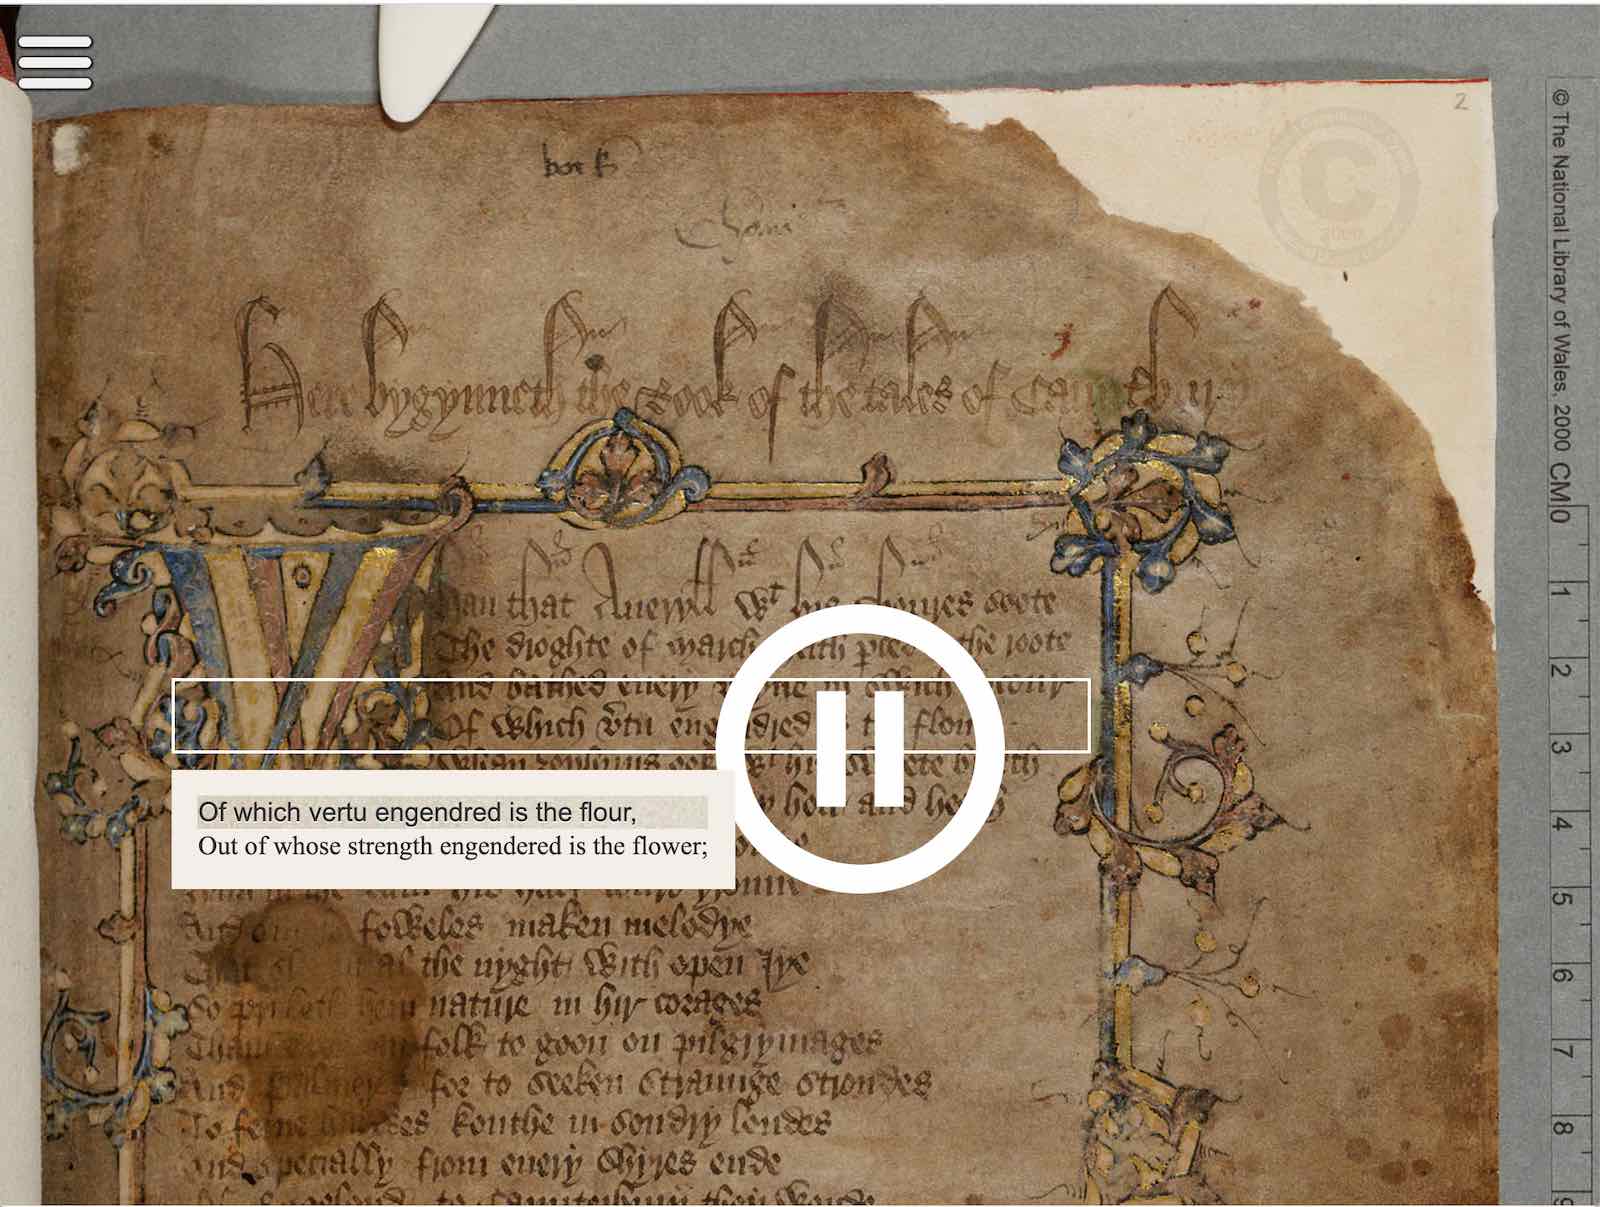 2
bok
Here bygynneth the Book of the tales of Caunterbury
Whan that Aueryll wt his shoures soote
The droghte of march hath perced the roote
And bathed euery veyne in swich licour
Of which vertu engendred is the flour
Whan zephirus eek wt his swete breeth
Of which vertu engendred is the flour,
Out of whose strength engendered is the flower;
foweles maken melodye
al the nyght with open Iye
So priketh hem nature in hir corages
folk to goon on pilgrymages
And for to seeken straunge strondes
To ferne halwes kouthe in sondry londes
And specially from euery Shyres ende
to Caunterbury they wende
© The National Library of Wales, 2000
CM 0 1 2 3 4 5 6 7 8 9